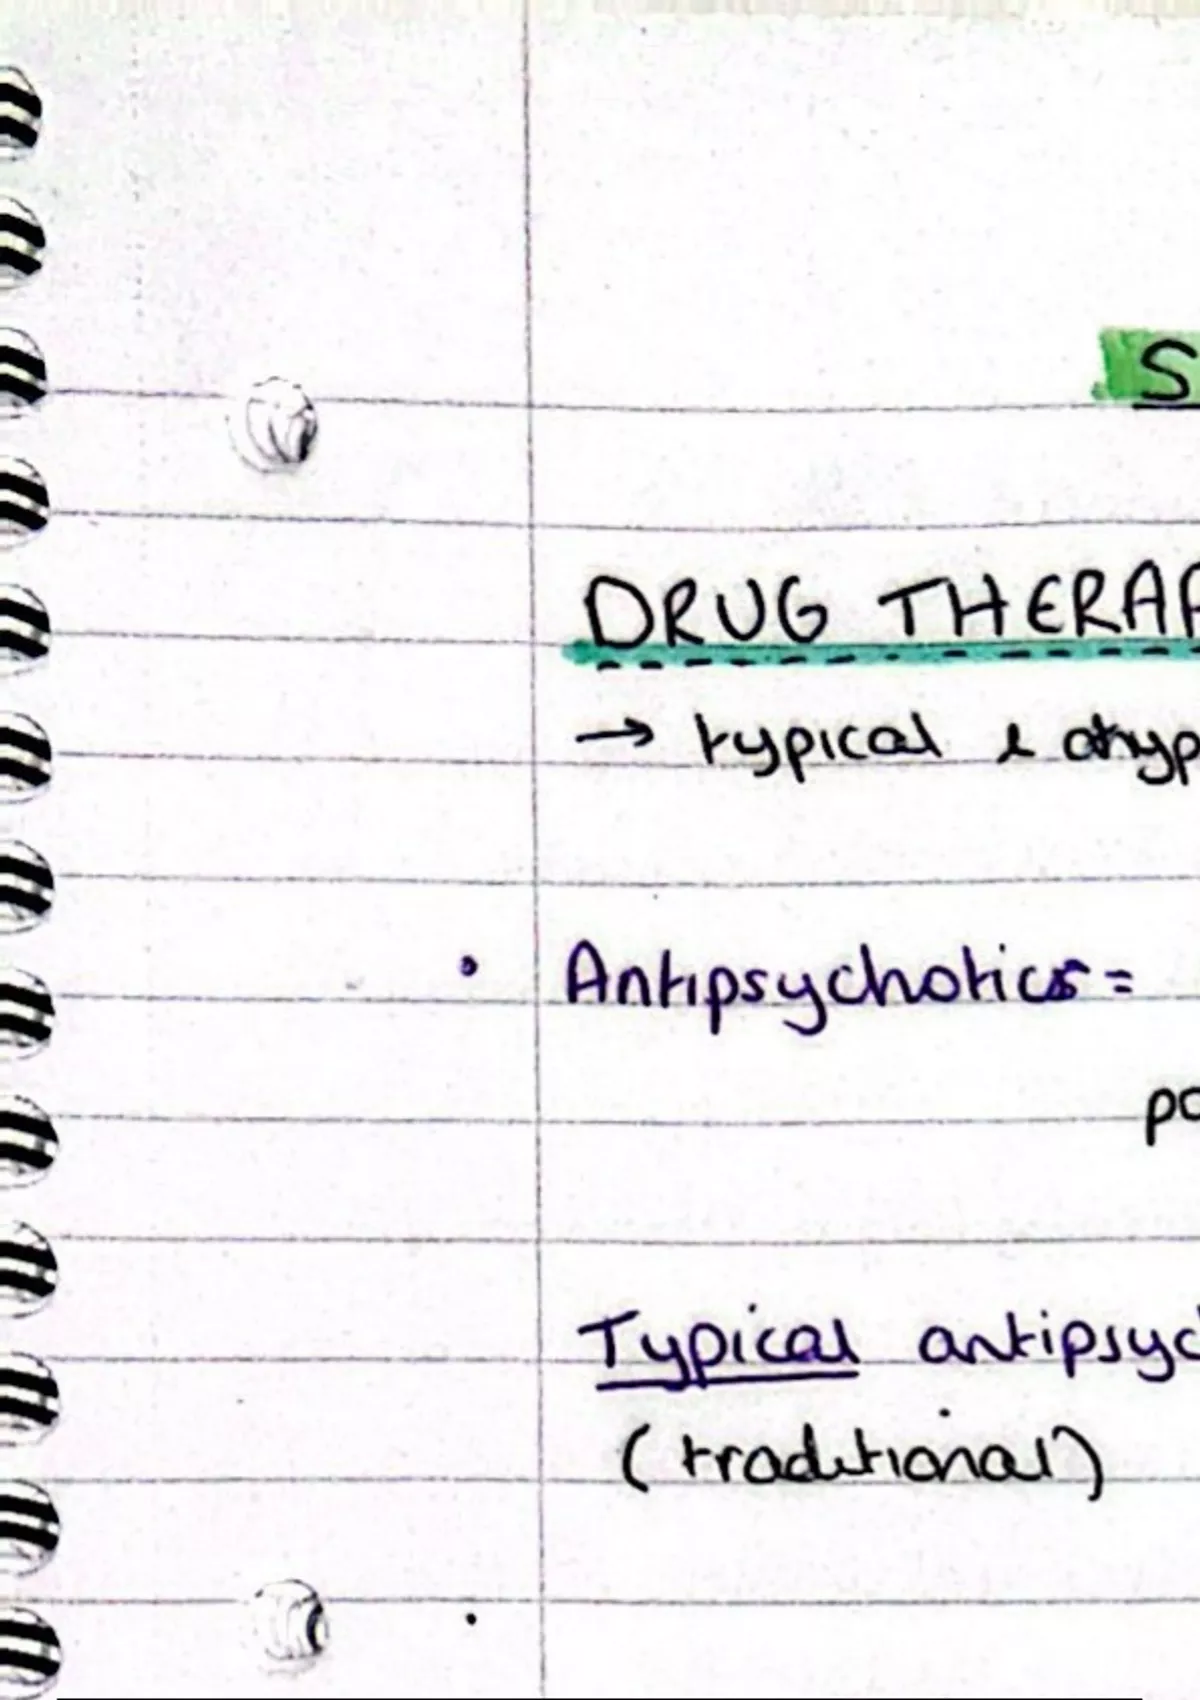 S
DRUG THERAP
→ typical & atyp
• Antipsychotics =
po
Typical antipsyc
(traditional)
•